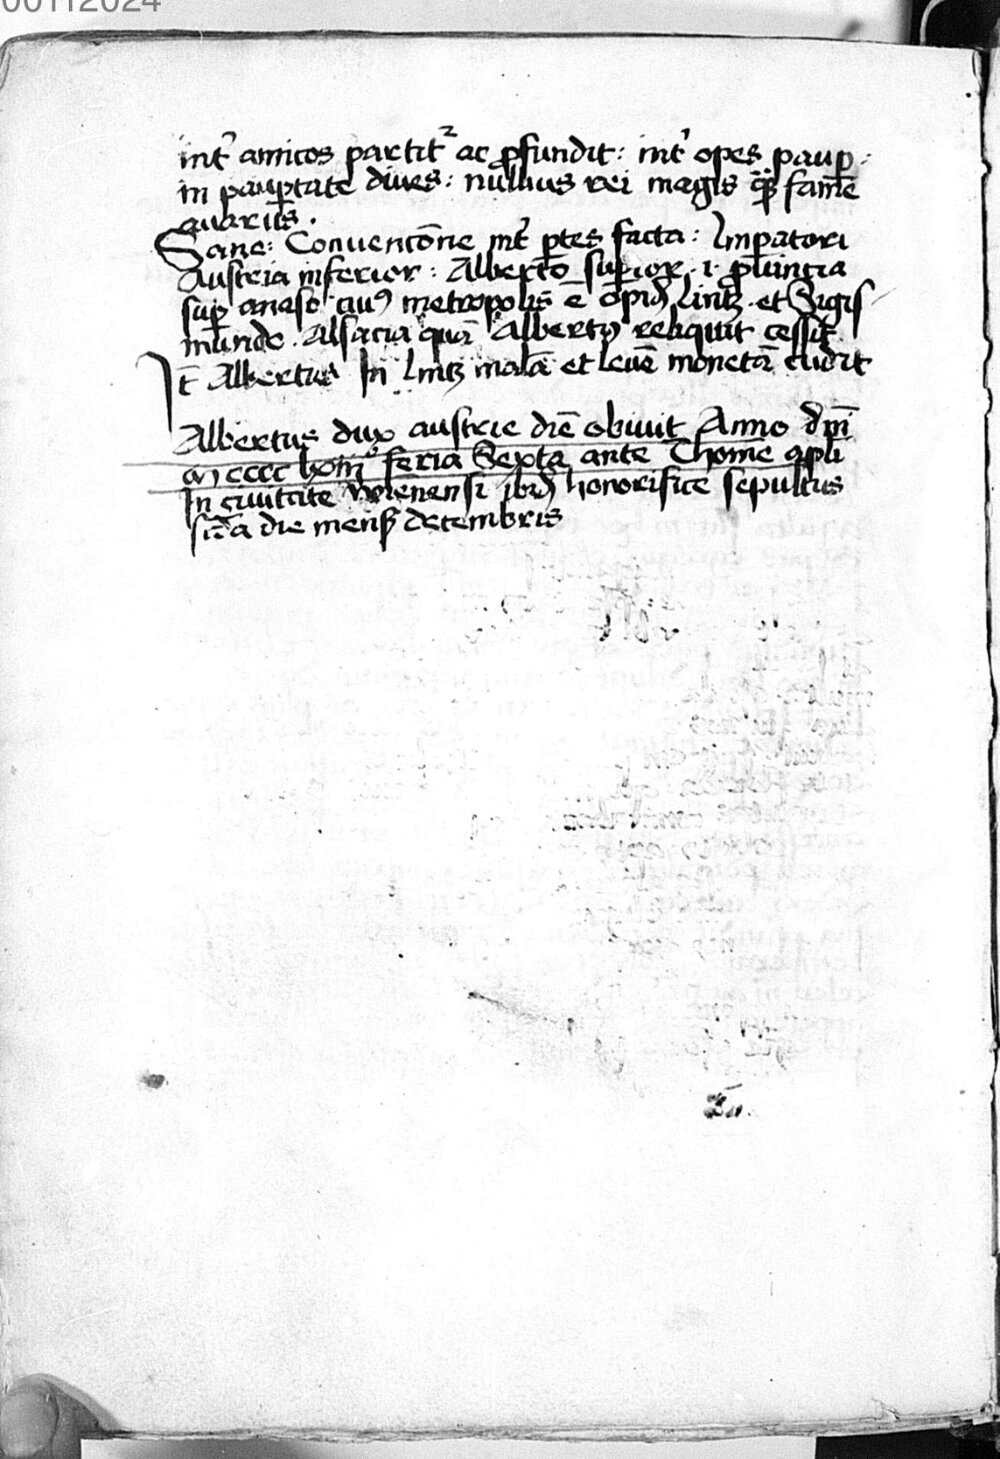 00112024
int̉ amicos partit² ac ꝓfundit : int̉ opes paup̱ :
in paup̱tate diues : nullius rei magis q̄ȝ fame
auarus .
Sane : Conuencōne int̉ p̱tes facta : Imp̱atori
Austria inferior : Alberto sup̱ior . i . ꝓuincia
sup̱ anaso cuiꝰ metropolis ē opid̄ lintz . et Sigis
mundo . Alsacia quā Albertꝰ reliquit cessit
It̄ Albertus In lintz malā et leuē monetā cudit
Albertus dux austrie diē obiuit Anno dm̄i
M cccc lxiiiº feria Sexta ante Thome apl̄i
In ciuitate wienensi ibid̄ honorifice sepultus
sc̄da die mens̄ decembris